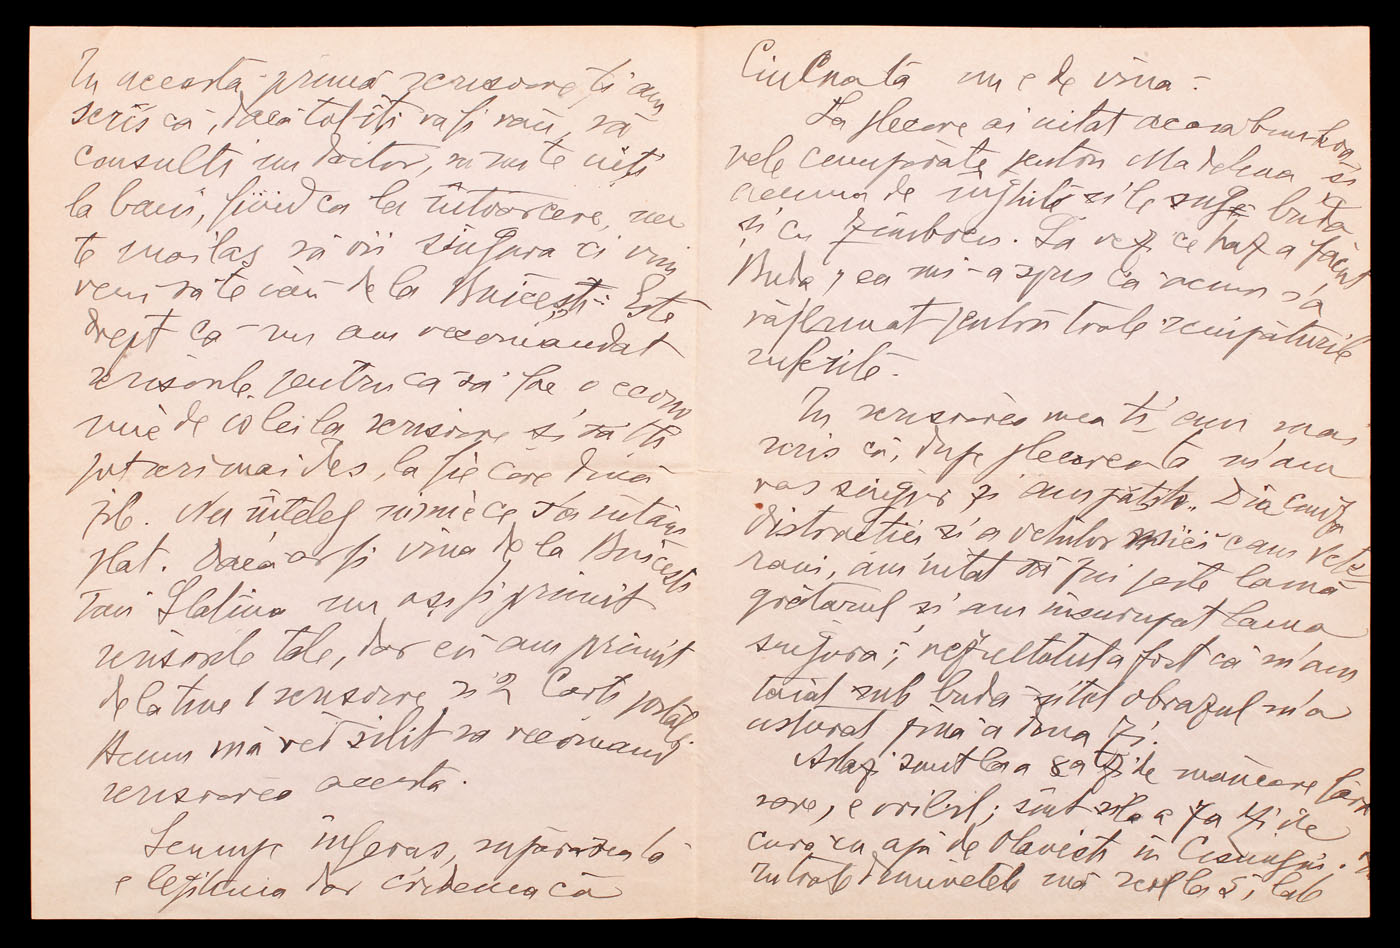 In această primă scrisoare ți-am
scris că, dacă tot îți va fi rău, să
consulți un doctor, să nu te uiți
la bani, fiindcă la întoarcere, nu
te mai las să vii singură ci vin
să te iau de la Buicești. Este
drept că nu am recomandat
scrisorile pentru ca să fac o econo
mie de 10 lei la scrisoare și să îți
pot scri mai des, la fie care două
zile. Nu înțeleg nimic ce s'a întâm
plat. Dacă ar fi vina de la Buicești
sau Slatina nu aș fi primit
scrisorile tale, dar eu am primit
de la tine 1 scrisoare și 2 Cărți postale.
Acum mă văd silit să recomand
scrisoarea aceasta.
Scumpe îngeraș, supărarea ta
e legitimă dar crede-mă că
Ciulnată nu e de vină.
La plecare ai uitat acasă
cumpărate pentru Madelena și
acuma de le suge buda
și cu Zimbocu. Să vezi ce haz a făcut
Buda, ea mi-a spus că acum s'a
răsbunat pentru toate
suferite.
In scrisoarea mea ți-am mai
scris că, după plecarea ta m'am
ras singur și am pățit-o. Din cauza
distracției și a ochilor mici cam
am uitat să pui peste lamă
grătarul și am însurupat lama
singură; rezultatul a fost că m'am
tăiat sub buda și tot obrazul m'a
usturat până a doua zi.
Astăzi sunt la a 8a zi de mâncare fără
sare, e oribil; sunt și la a 7a zi de
cură cu apă de Olănești în
toate diminețile mă scol la 5, iau